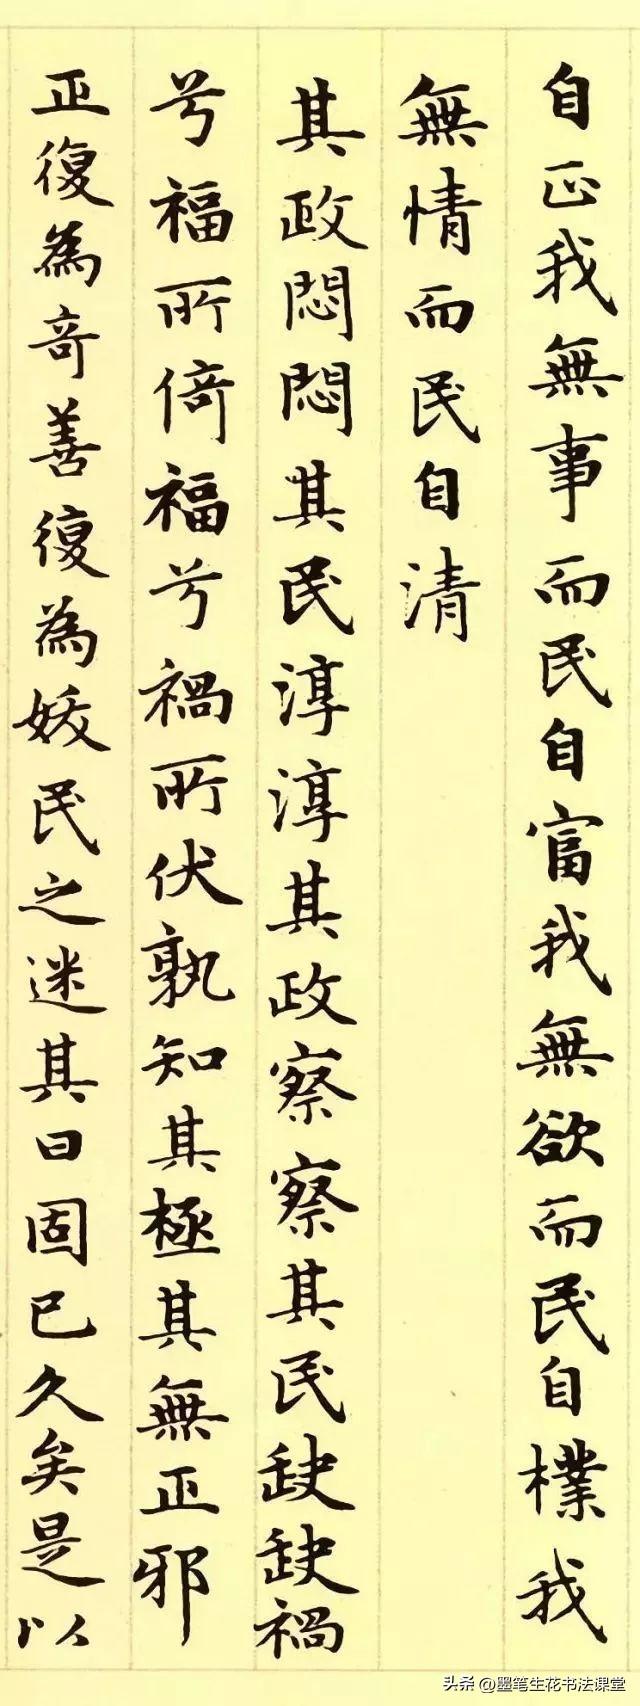 自正我無事而民自富我無欲而民自樸我
無情而民自清
其政悶悶其民淳淳其政察察其民缺缺禍
兮福所倚福兮禍所伏孰知其極其無正邪
正復為奇善復為妖民之迷其日固已久矣是以
头条 @墨笔生花书法课堂